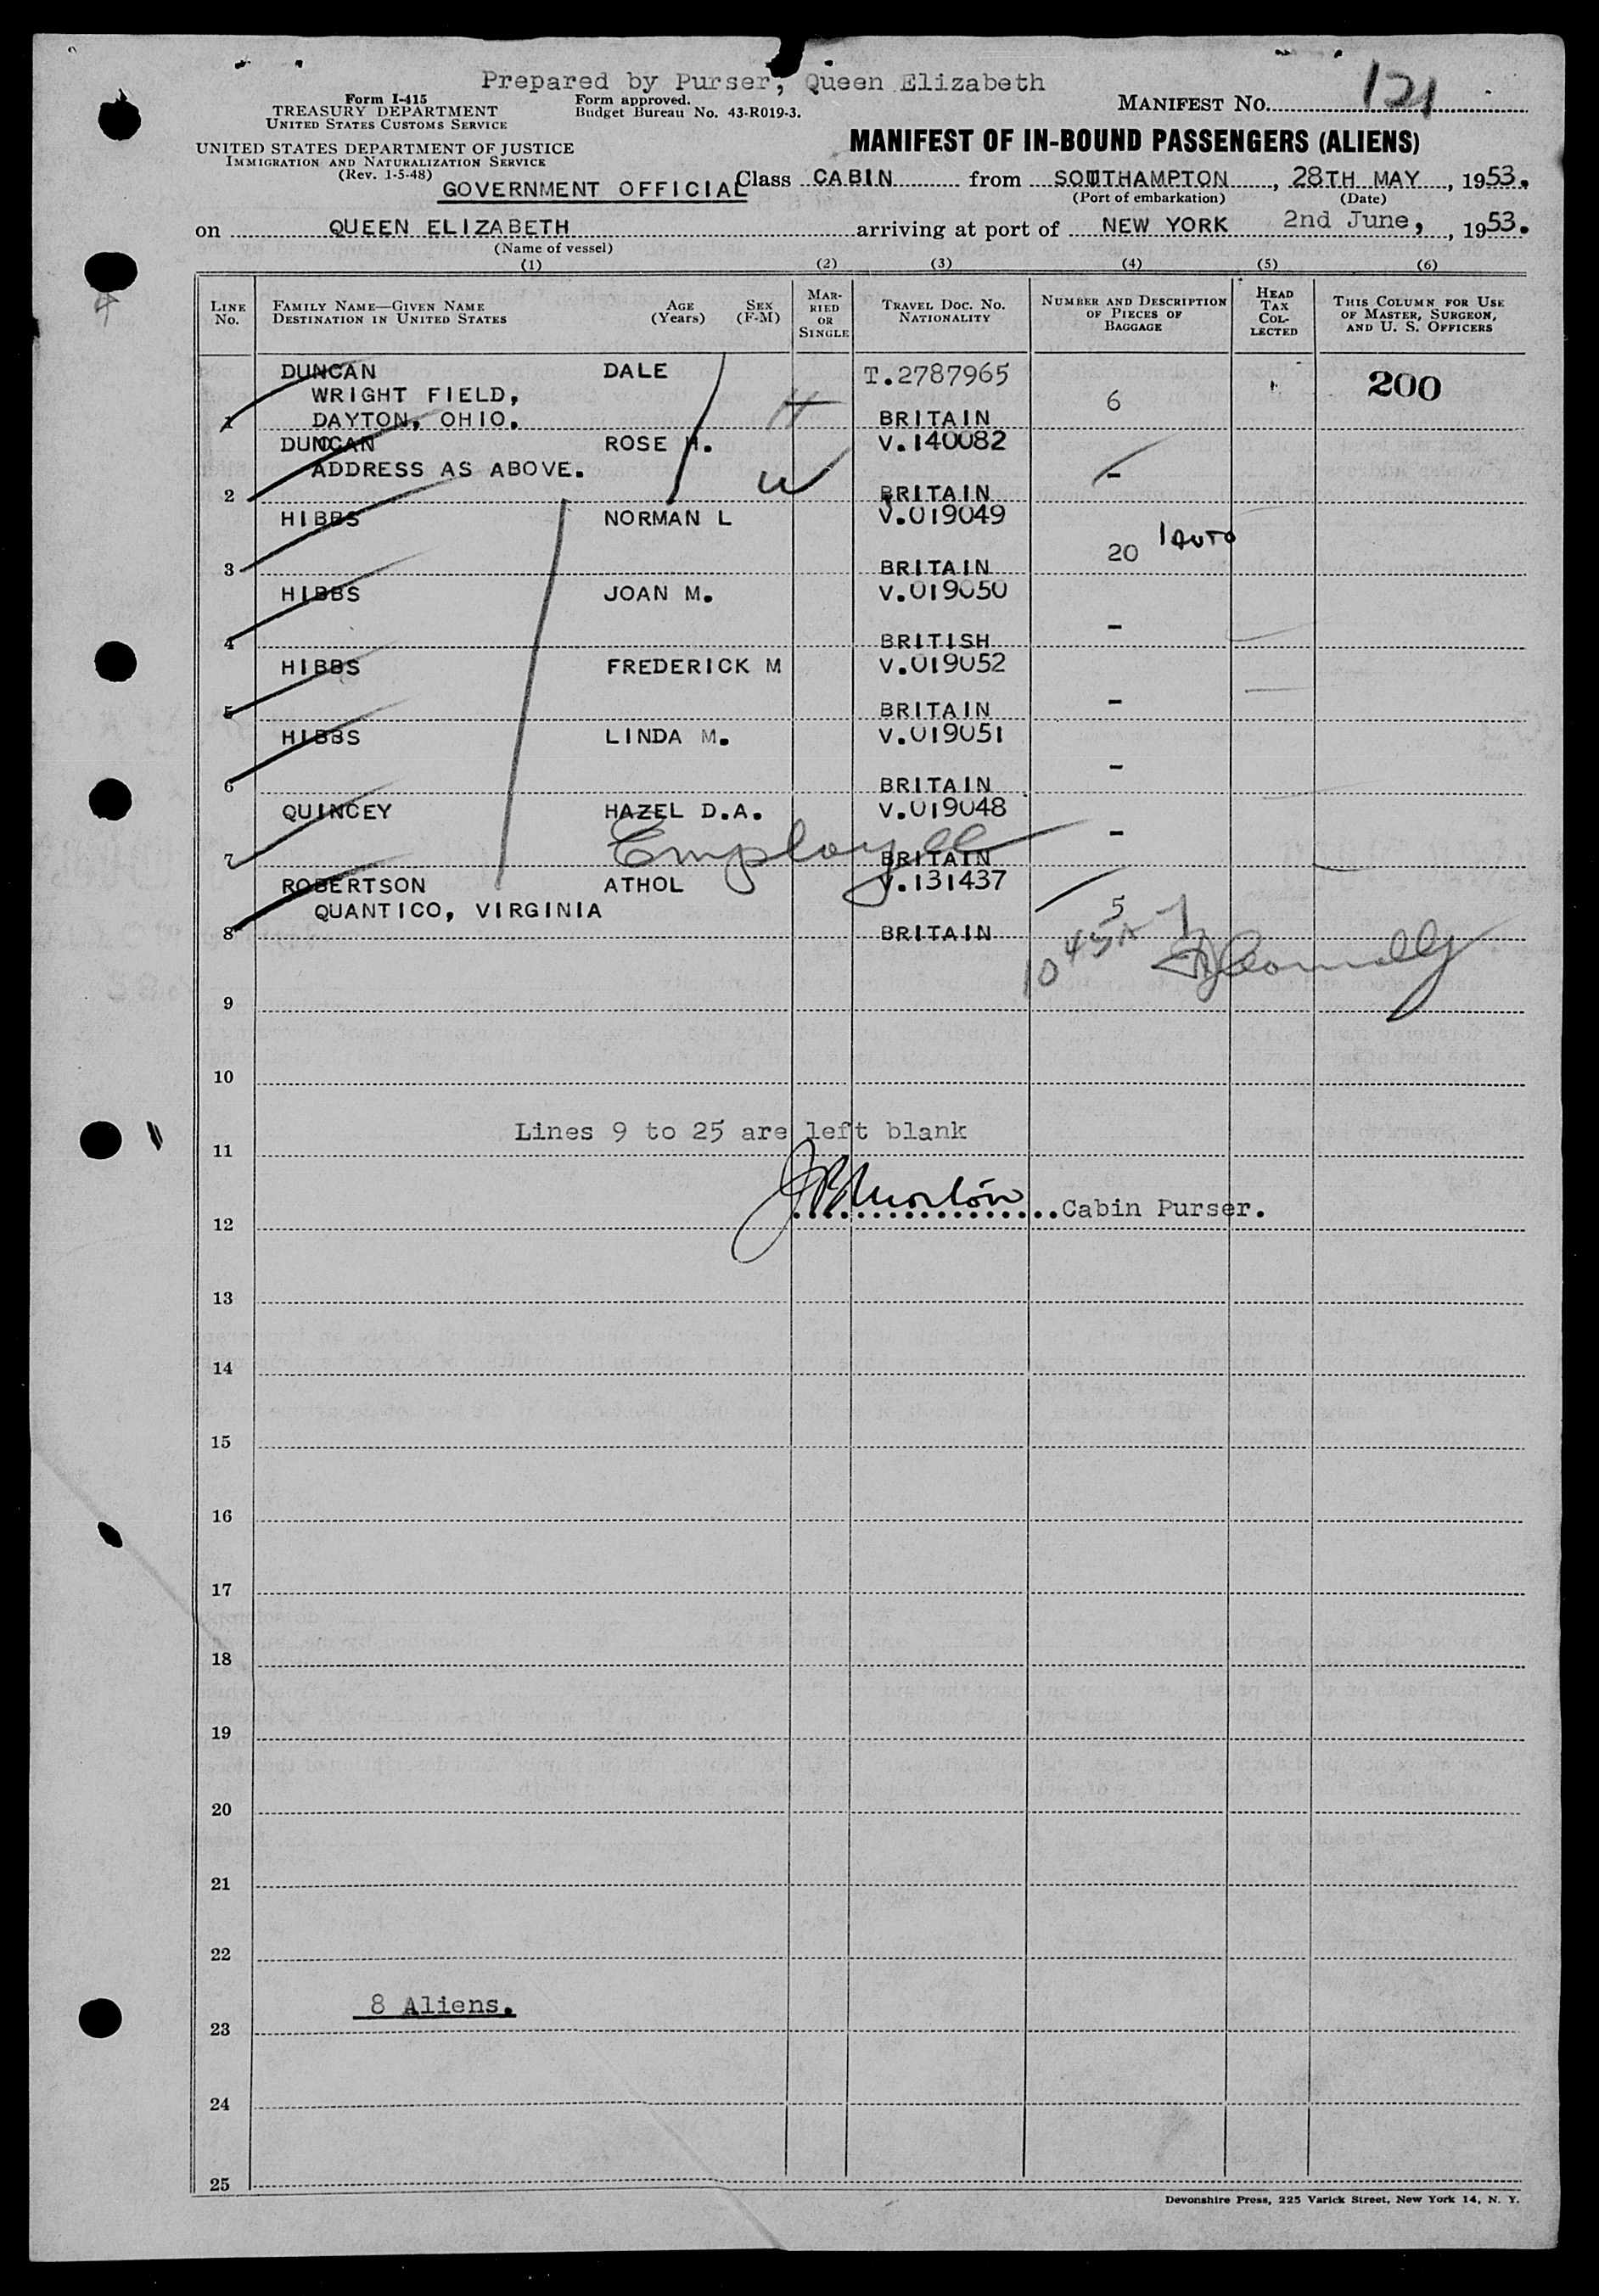 Prepared by Purser, Queen Elizabeth
Form I-415
TREASURY DEPARTMENT
UNITED STATES CUSTOMS SERVICE
Form approved.
Budget Bureau No. 43-R019-3.
MANIFEST NO. 121
UNITED STATES DEPARTMENT OF JUSTICE
IMMIGRATION AND NATURALIZATION SERVICE
(Rev. 1-5-48)
MANIFEST OF IN-BOUND PASSENGERS (ALIENS)
GOVERNMENT OFFICIAL Class CABIN from SOUTHAMPTON, 28TH MAY, 1953.
(Port of embarkation) (Date)
on QUEEN ELIZABETH arriving at port of NEW YORK 2nd June, , 1953.
(Name of vessel)
(1) (2) (3) (4) (5) (6)
LINE No. FAMILY NAME—GIVEN NAME DESTINATION IN UNITED STATES AGE (Years) SEX (F-M) MARRIED OR SINGLE TRAVEL DOC. NO. NATIONALITY NUMBER AND DESCRIPTION OF PIECES OF BAGGAGE HEAD TAX COLLECTED THIS COLUMN FOR USE OF MASTER, SURGEON, AND U. S. OFFICERS
DUNCAN DALE T.2787965 200
WRIGHT FIELD, 6
1 DAYTON, OHIO. H BRITAIN
DUNCAN ROSE H. V.140082
ADDRESS AS ABOVE. W -
2 BRITAIN
HIBBS NORMAN L V.019049
20 1 AUTO
3 BRITAIN
HIBBS JOAN M. V.019050
-
4 BRITISH
HIBBS FREDERICK M V.019052
5 BRITAIN -
HIBBS LINDA M. V.019051
-
6 BRITAIN
QUINCEY HAZEL D.A. V.019048
Employee -
7 BRITAIN
ROBERTSON ATHOL V.131437
QUANTICO, VIRGINIA 5
8 BRITAIN
9
10
Lines 9 to 25 are left blank
11
J B Morton Cabin Purser.
12
13
14
15
16
17
18
19
20
21
22
8 Aliens.
23
24
25
Devonshire Press, 225 Varick Street, New York 14, N. Y.